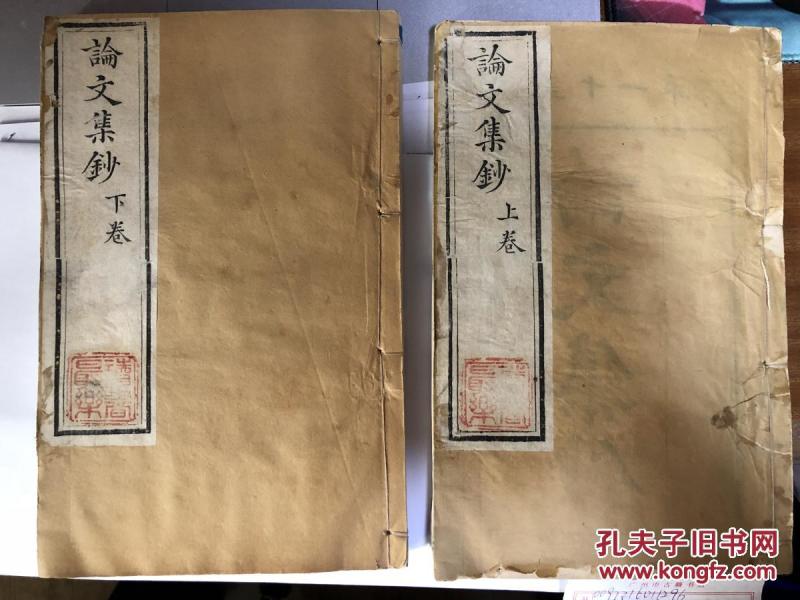 論文集鈔
下卷
論文集鈔
上卷
孔夫子旧书网
www.kongfz.com